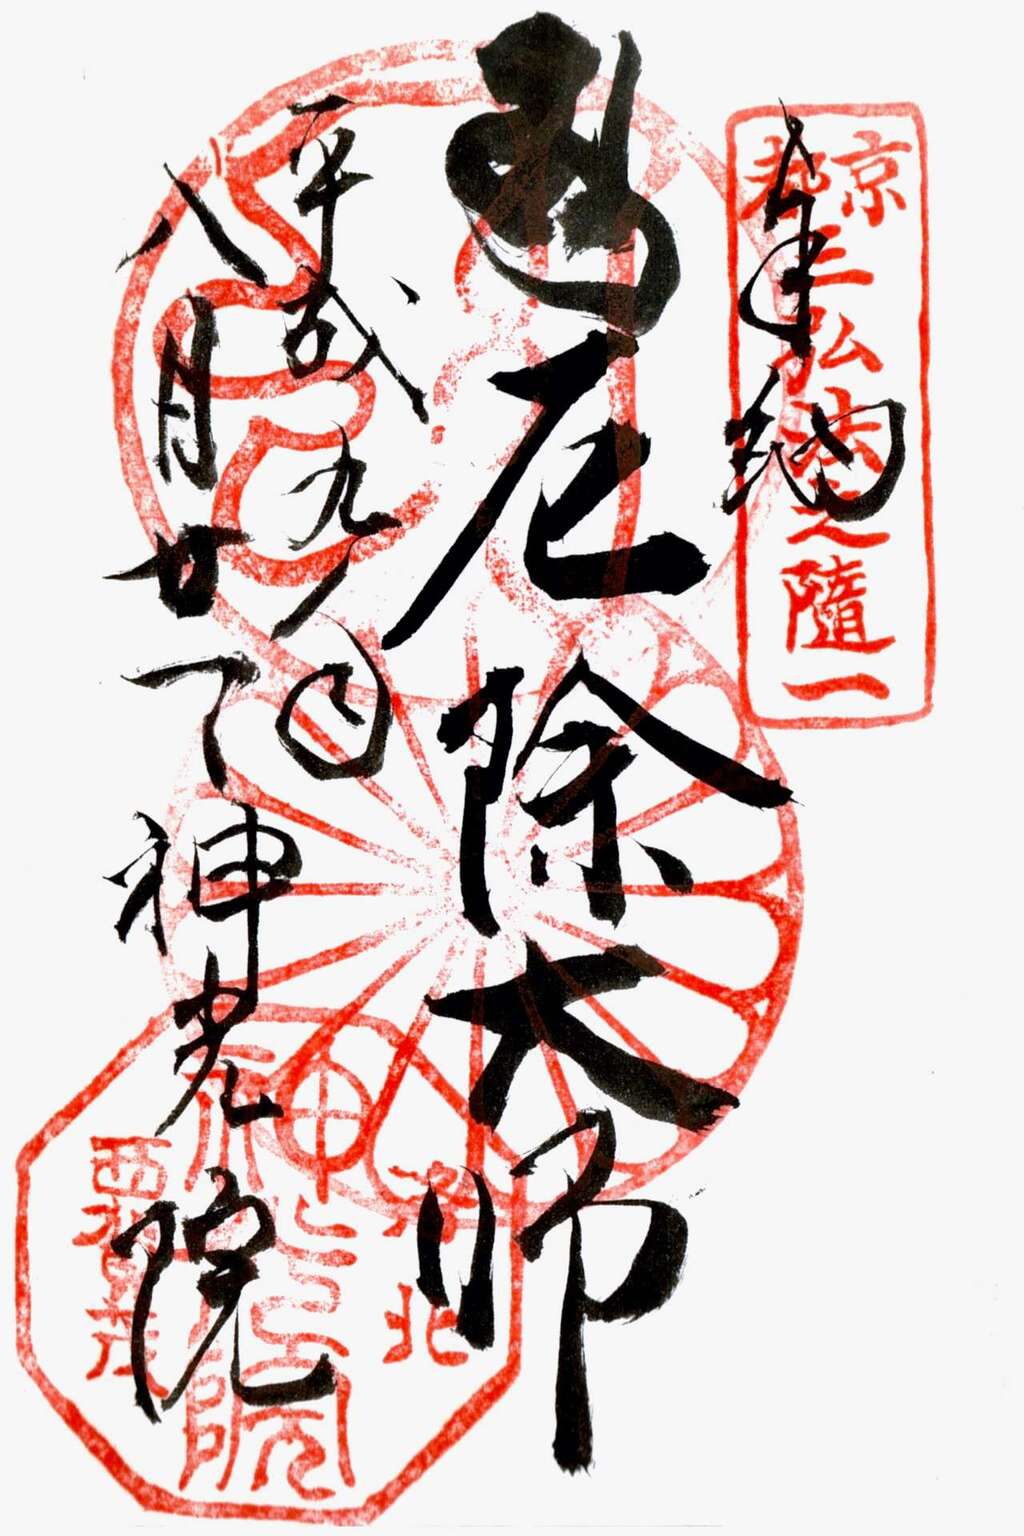 奉納
京都三弘法之隨一
厄除大師
平成九年
八月廿一日
神光院
神光院
洛北
西賀茂